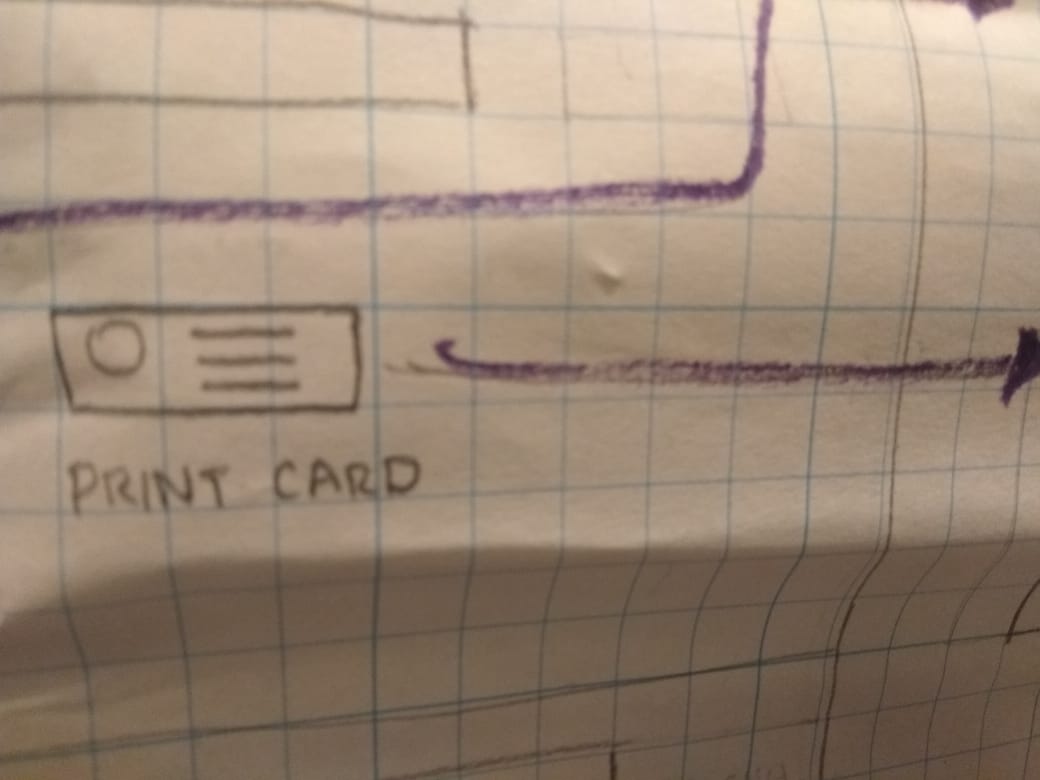 PRINT CARD